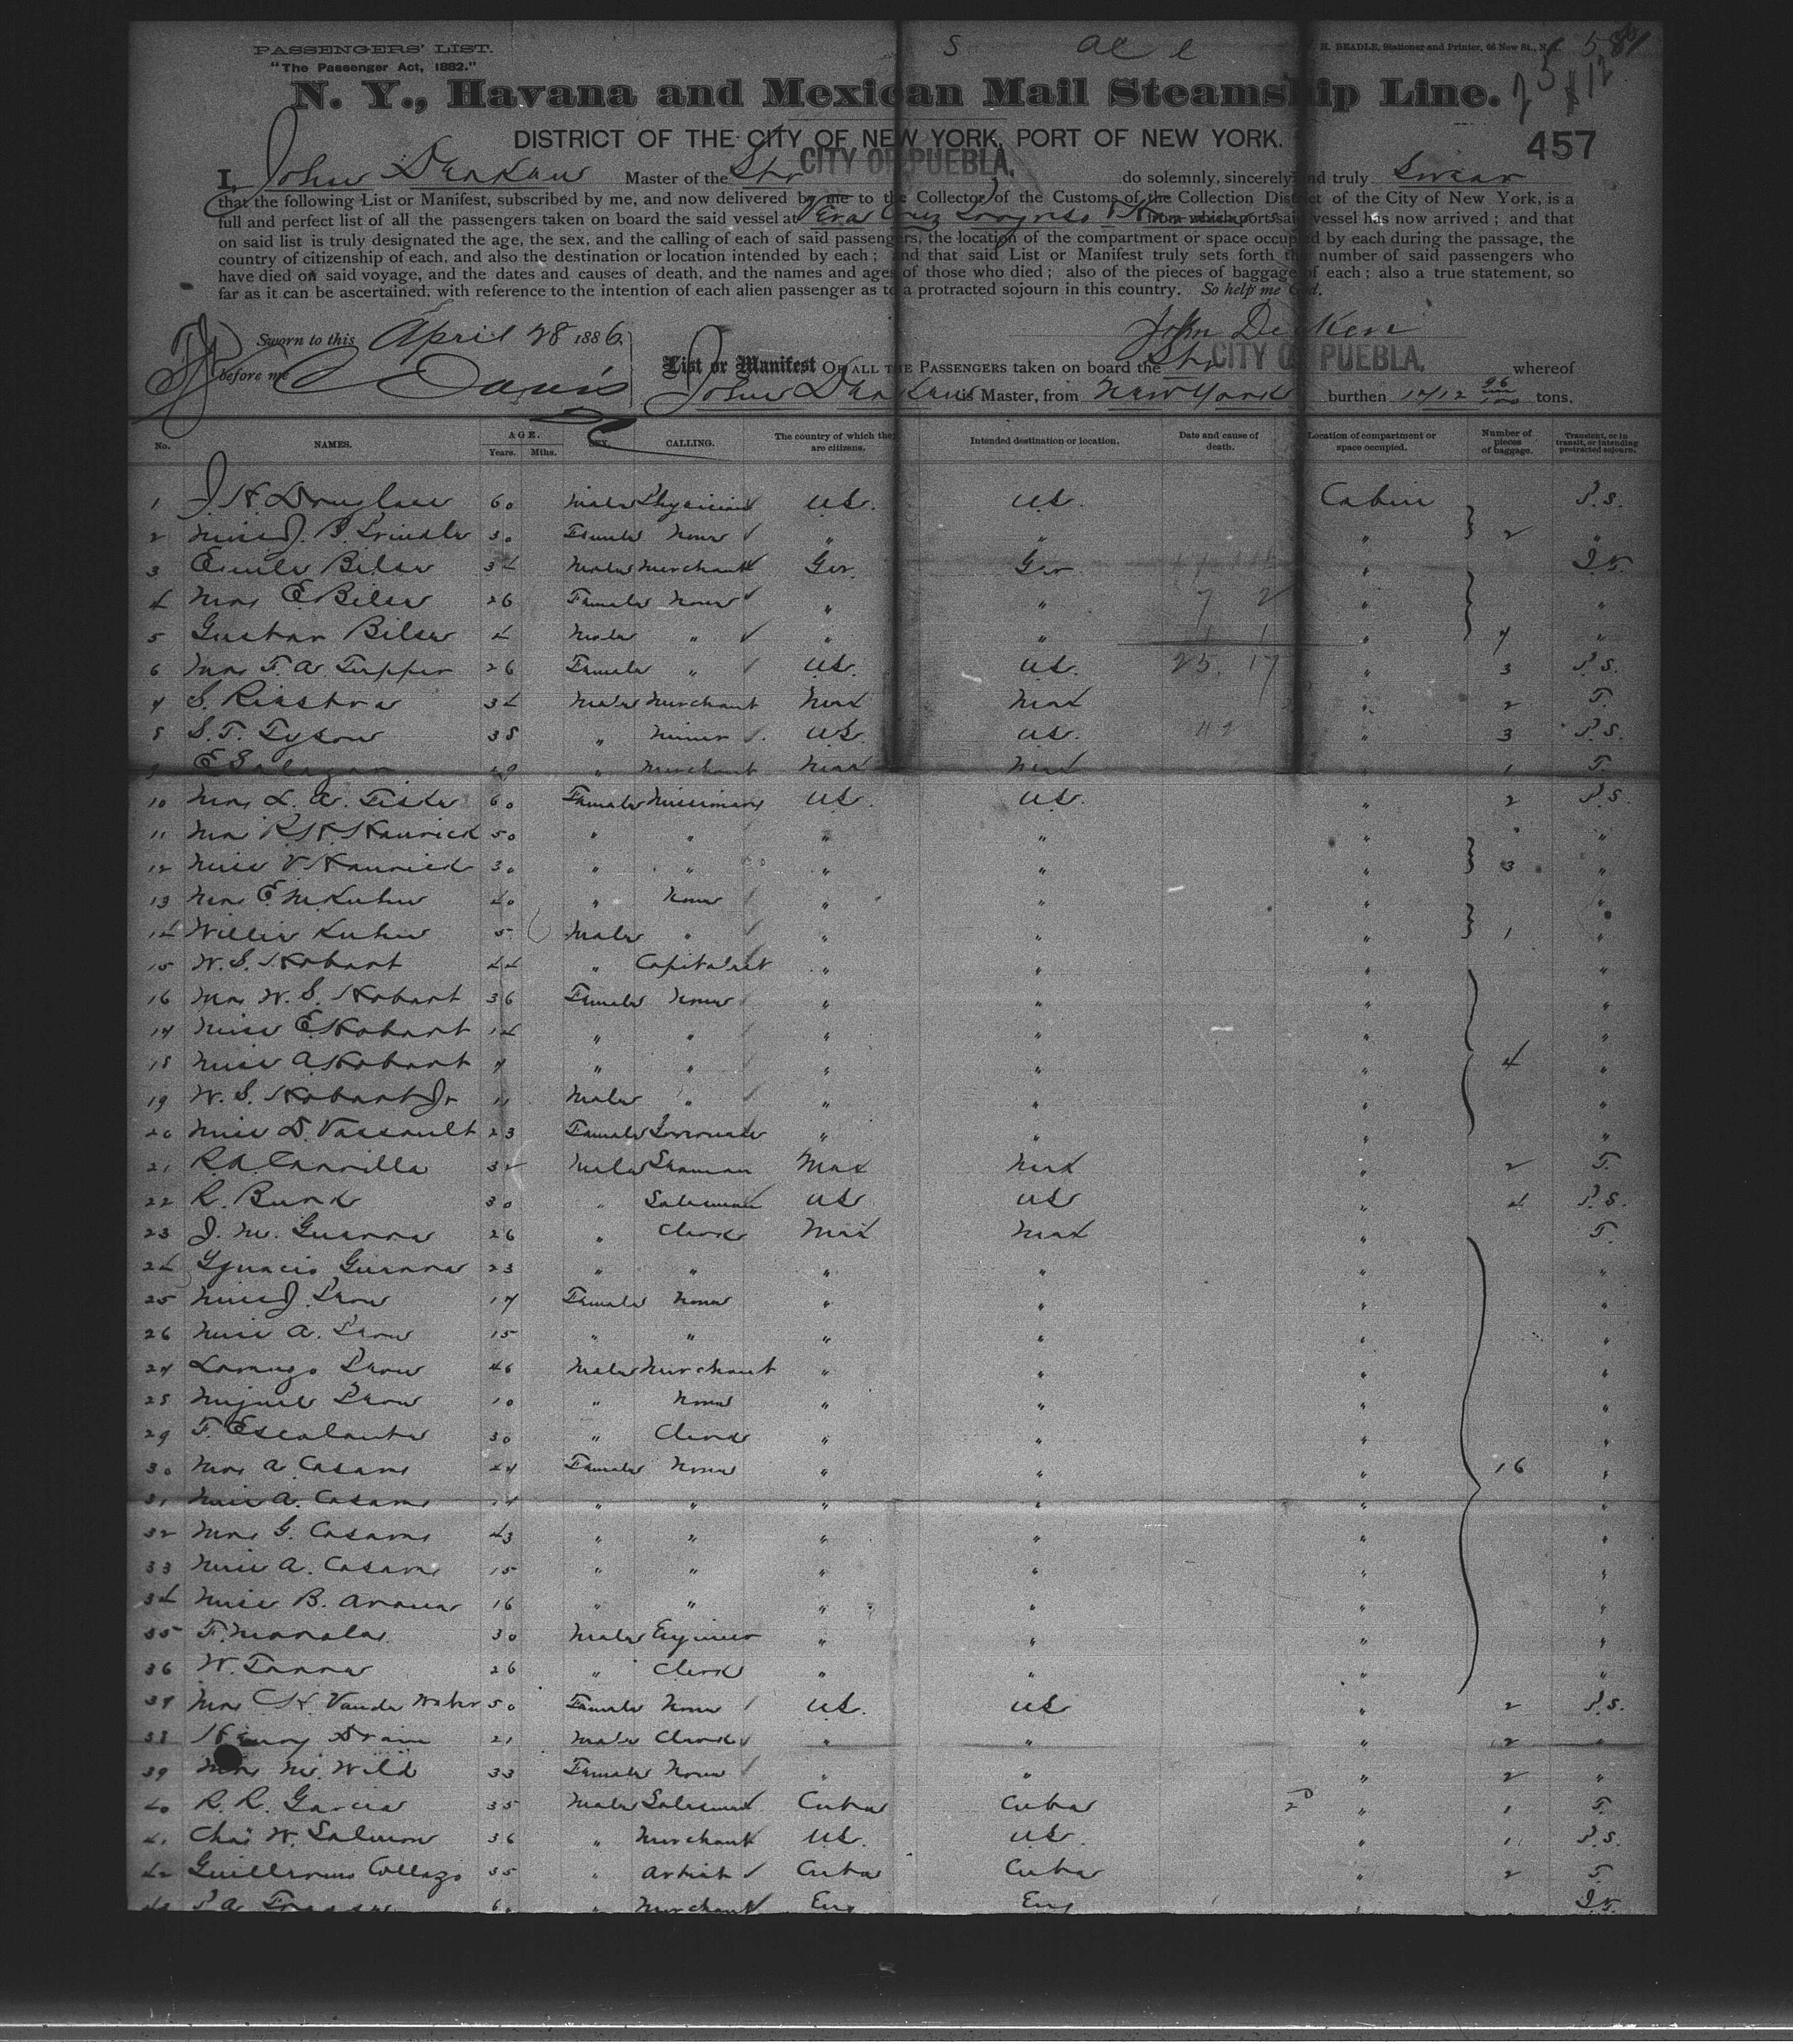 PASSENGERS' LIST.
"The Passenger Act, 1882."
H. BEADLE, Stationer and Printer, 66 New St., N.
N. Y., Havana and Mexican Mail Steamship Line.
DISTRICT OF THE CITY OF NEW YORK, PORT OF NEW YORK.
457
I, John Deaken Master of the Str CITY OF PUEBLA, do solemnly, sincerely and truly Swear
that the following List or Manifest, subscribed by me, and now delivered by me to the Collector of the Customs of the Collection District of the City of New York, is a
full and perfect list of all the passengers taken on board the said vessel at Vera Cruz Progreso from which port said vessel has now arrived; and that
on said list is truly designated the age, the sex, and the calling of each of said passengers, the location of the compartment or space occupied by each during the passage, the
country of citizenship of each, and also the destination or location intended by each; and that said List or Manifest truly sets forth the number of said passengers who
have died on said voyage, and the dates and causes of death, and the names and ages of those who died; also of the pieces of baggage of each; also a true statement, so
far as it can be ascertained, with reference to the intention of each alien passenger as to a protracted sojourn in this country. So help me God.
Sworn to this April 28 1886. John Deaken
before me C Davis
List or Manifest OF ALL THE PASSENGERS taken on board the Str CITY OF PUEBLA, whereof
John Deaken is Master, from New York burthen tons.
No. NAMES. AGE. Years. Mths. SEX. CALLING. The country of which they are citizens. Intended destination or location. Date and cause of death. Location of compartment or space occupied. Number of pieces of baggage. Transient, or in transit, or intending protracted sojourn.
1 J. H. Douglass 60 Male Physician U.S. U.S. Cabin P.S.
2 Miss J. B. Prindle 30 Female None " " " 2 "
3 Emile Bilse 34 Male Merchant Ger. Ger "
4 Mrs E Bilse 26 Female None " " " "
5 Gustav Bilse 4 Male " " " " 7 "
6 Mrs T. A. Tupper 26 Female " U.S. U.S. " 3 P.S.
7 S. Riastra 34 Male Merchant Mex Mex " 2 T.
8 S. T. Tyson 38 " Miner U.S. U.S. " 3 P.S.
9 E Salazar " Merchant Mex Mex 1 T.
10 Mrs L. A. Fiske 60 Female Missionary U.S. U.S. " 2 P.S.
11 Mrs R. H. Hamrick 50 " " " " " "
12 Miss V Hamrick 30 " " " " " 3 "
13 Mrs E. M. Kuhn 40 " None " " " "
14 Willie Kuhn 5 Male " " " " 1 "
15 W. S. Hobart 44 " Capitalist " " " "
16 Mrs W. S. Hobart 36 Female None " " " "
17 Miss E Hobart 14 " " " " " "
18 Miss A. Hobart 7 " " " " " 4 "
19 W. S. Hobart Jr 11 Male " " " " "
20 Miss D. Vassault 23 Female Governess " " " "
21 R. A. Carrilla 32 Male Seaman Mex Mex " 2 T.
22 R. Bund 30 " Salesman US US " 4 P.S.
23 J. M. Guerra 26 " Clerk Mex Mex " T.
24 Ygnacio Guerra 23 " " " " " "
25 Miss J. Peon 17 Female None " " " "
26 Miss A. Peon 15 " " " " " "
27 Lorenzo Peon 46 Male Merchant " " " "
28 Miguel Peon 10 " None " " " "
29 F. Escalante 30 " Clerk " " " "
30 Mrs A Casares 47 Female None " " " 16 "
31 Miss A. Casares " " " " " "
32 Mrs G. Casares 43 " " " " " "
33 Miss A. Casares 15 " " " " " "
34 Miss B. 16 " " " " " "
35 F. Morales 30 Male Engineer " " " "
36 W. 26 " Clerk " " " "
37 Mrs C. H. Vande Water 50 Female None U.S. US " 2 P.S.
38 Henry Drain 21 Male Clerk " " " 2 "
39 Mrs M. Wild 33 Female None " " " 2 "
40 R. R. Garcia 35 Male Salesman Cuba Cuba " 1 T.
41 Chas W. Salmon 36 " Merchant U.S. U.S. " 1 P.S.
42 Guillermo Collazo 35 " Artist Cuba Cuba " 2 T.
43 " Merchant Eng Eng